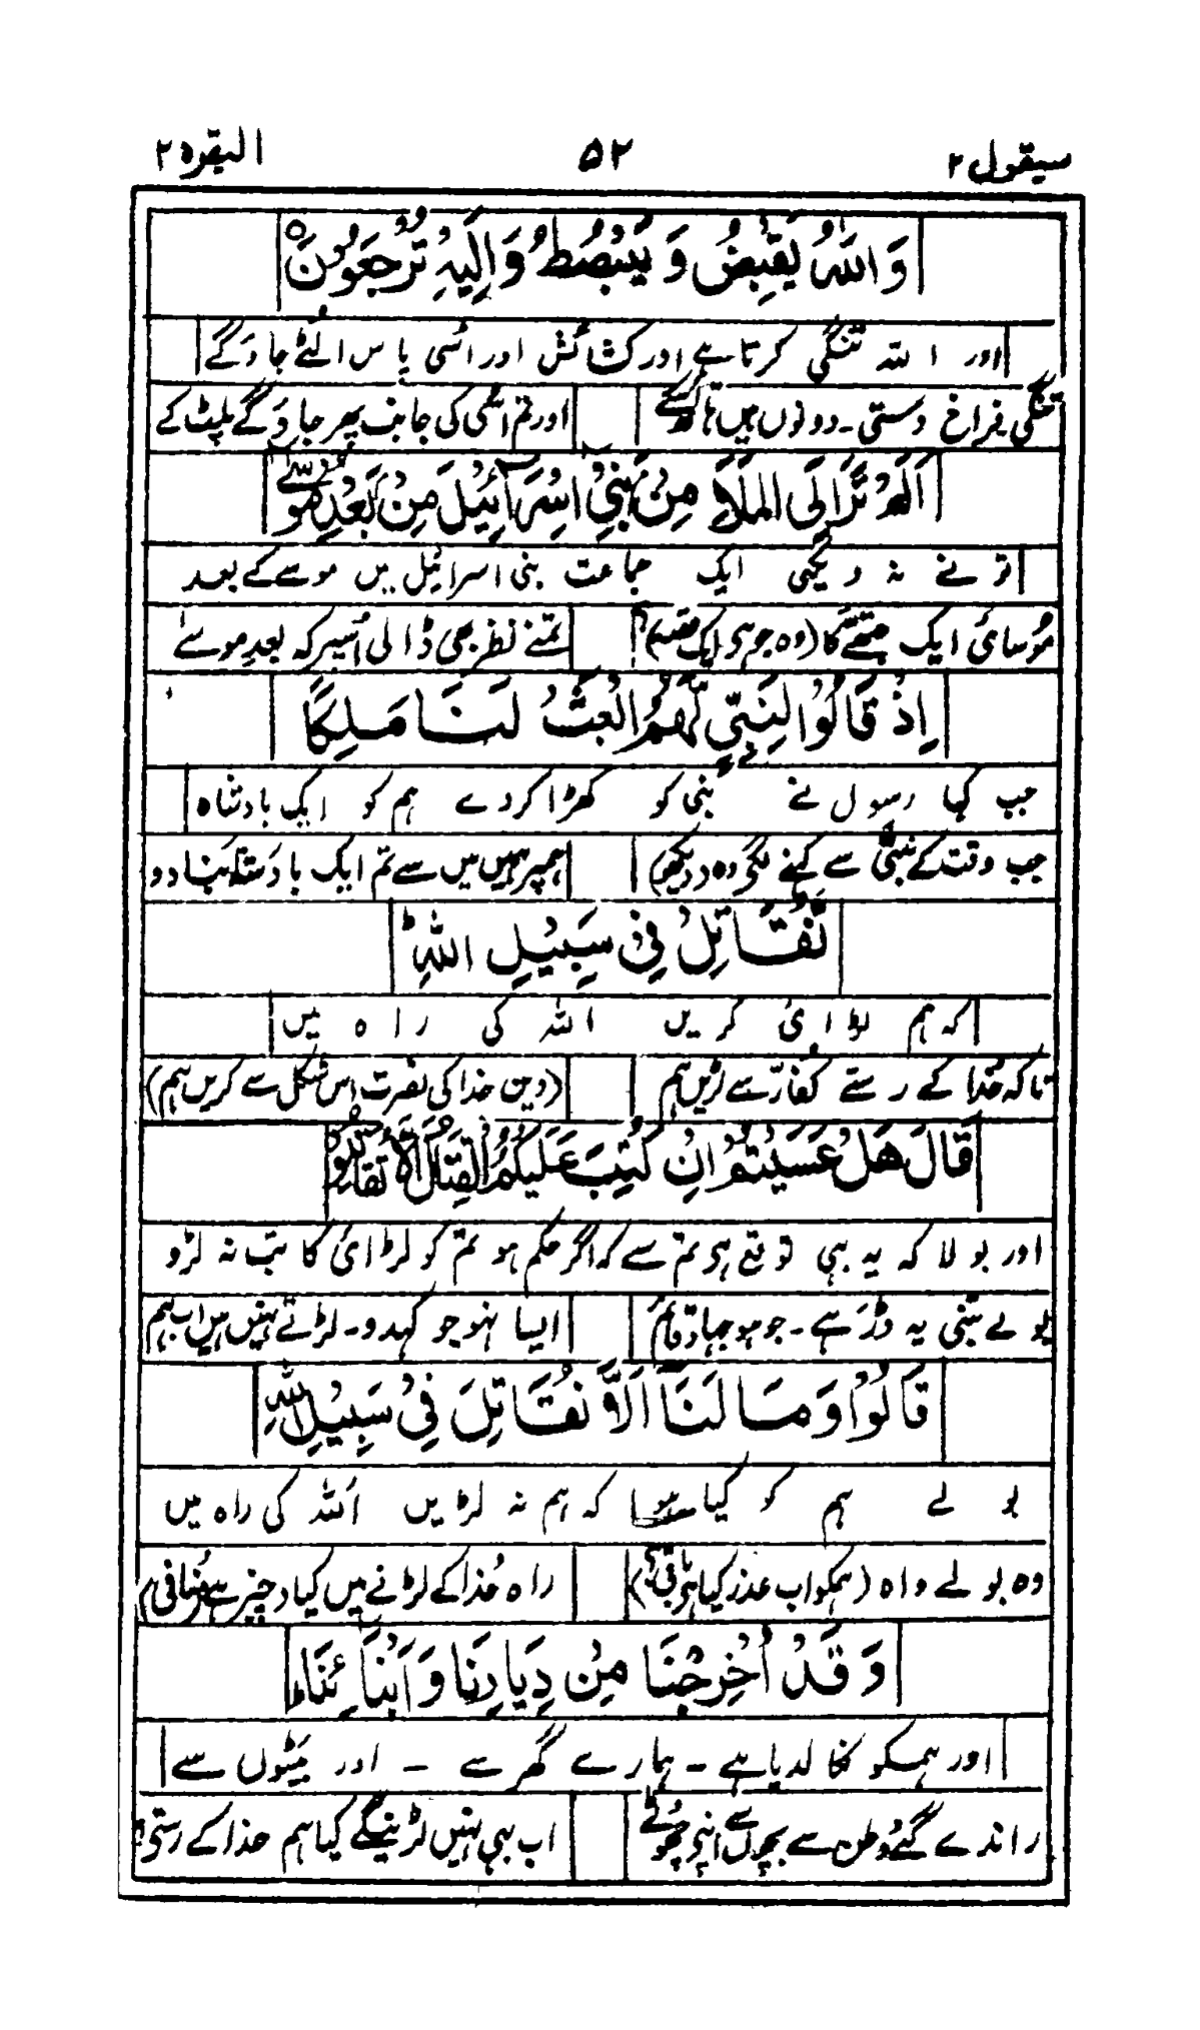 سیقول ۲ ۵۲ البقرہ ۲
وَاللّٰهُ يَقْبِضُ وَيَبْصُطُ وَاِلَيْهِ تُرْجَعُوْنَ
اور اللہ تنگی کرتا ہے اور کشائش اور اسی پاس الٹے جاوگے
تنگی فراغ دستی۔ دونوں ہیں اور تم اسی کی جانب پھر جاوگے پلٹ کے
اَلَمْ تَرَ اِلَى الْمَلَاِ مِنْۢ بَنِيْ اِسْرَآئِيْلَ مِنْۢ بَعْدِ مُوْسٰى
تو نے نہ دیکھی ایک جماعت بنی اسرائیل میں موسے کے بعد
موسائی ایک جتھے کا (وہ جو ہو ایک قصہ) تمنے نظر بھی ڈالی اسپر کہ بعد موسےٰ
اِذْ قَالُوْا لِنَبِيٍّ لَّهُمُ ابْعَثْ لَنَا مَلِكًا
جب کہا رسول نے نبی کو کھڑا کردے ہم کو ایک بادشاہ
جب وقت کے نبی سے کہنے لگی وہ (دیکھو) ہمپر ہمیں میں سے تم ایک بادشاہ بنا دو
نُّقَاتِلْ فِيْ سَبِيْلِ اللّٰهِ
کہ ہم لڑائی کریں اللہ کی راہ میں
تاکہ خدا کے رستے کفار سے لڑیں ہم (دین خدا کی نصرت اس شکل سے کریں ہم)
قَالَ هَلْ عَسَيْتُمْ اِنْ كُتِبَ عَلَيْكُمُ الْقِتَالُ اَلَّا تُقَاتِلُوْا
اور بولا کہ یہ بہی توقع ہی تم سے کہ اگر حکم ہو تم کو لڑائی کا تب نہ لڑو
بولے نبی یہ ڈر ہے۔ جو ہو جہاد قائم ایسا نہو جو کہدو۔ لڑتے نہیں ہیں اب ہم
قَالُوْا وَمَا لَنَآ اَلَّا نُقَاتِلَ فِيْ سَبِيْلِ اللّٰهِ
بولے ہم کو کیا ہوا کہ ہم نہ لڑیں اللہ کی راہ میں
وہ بولے واہ (ہمکو اب عذر کیا ہی باقی) راہ خدا کے لڑنے میں کیا (چیز ہے منافی)
وَقَدْ اُخْرِجْنَا مِنْ دِيَارِنَا وَاَبْنَآئِنَا
اور ہمکو نکالدیا ہے ۔ ہمارے گھر سے ۔ اور بیٹوں سے
راندے گئے وطن سے بچوں سے اپنی چھوٹے اب بہی نہیں لڑینگے کیا ہم خدا کے رستی